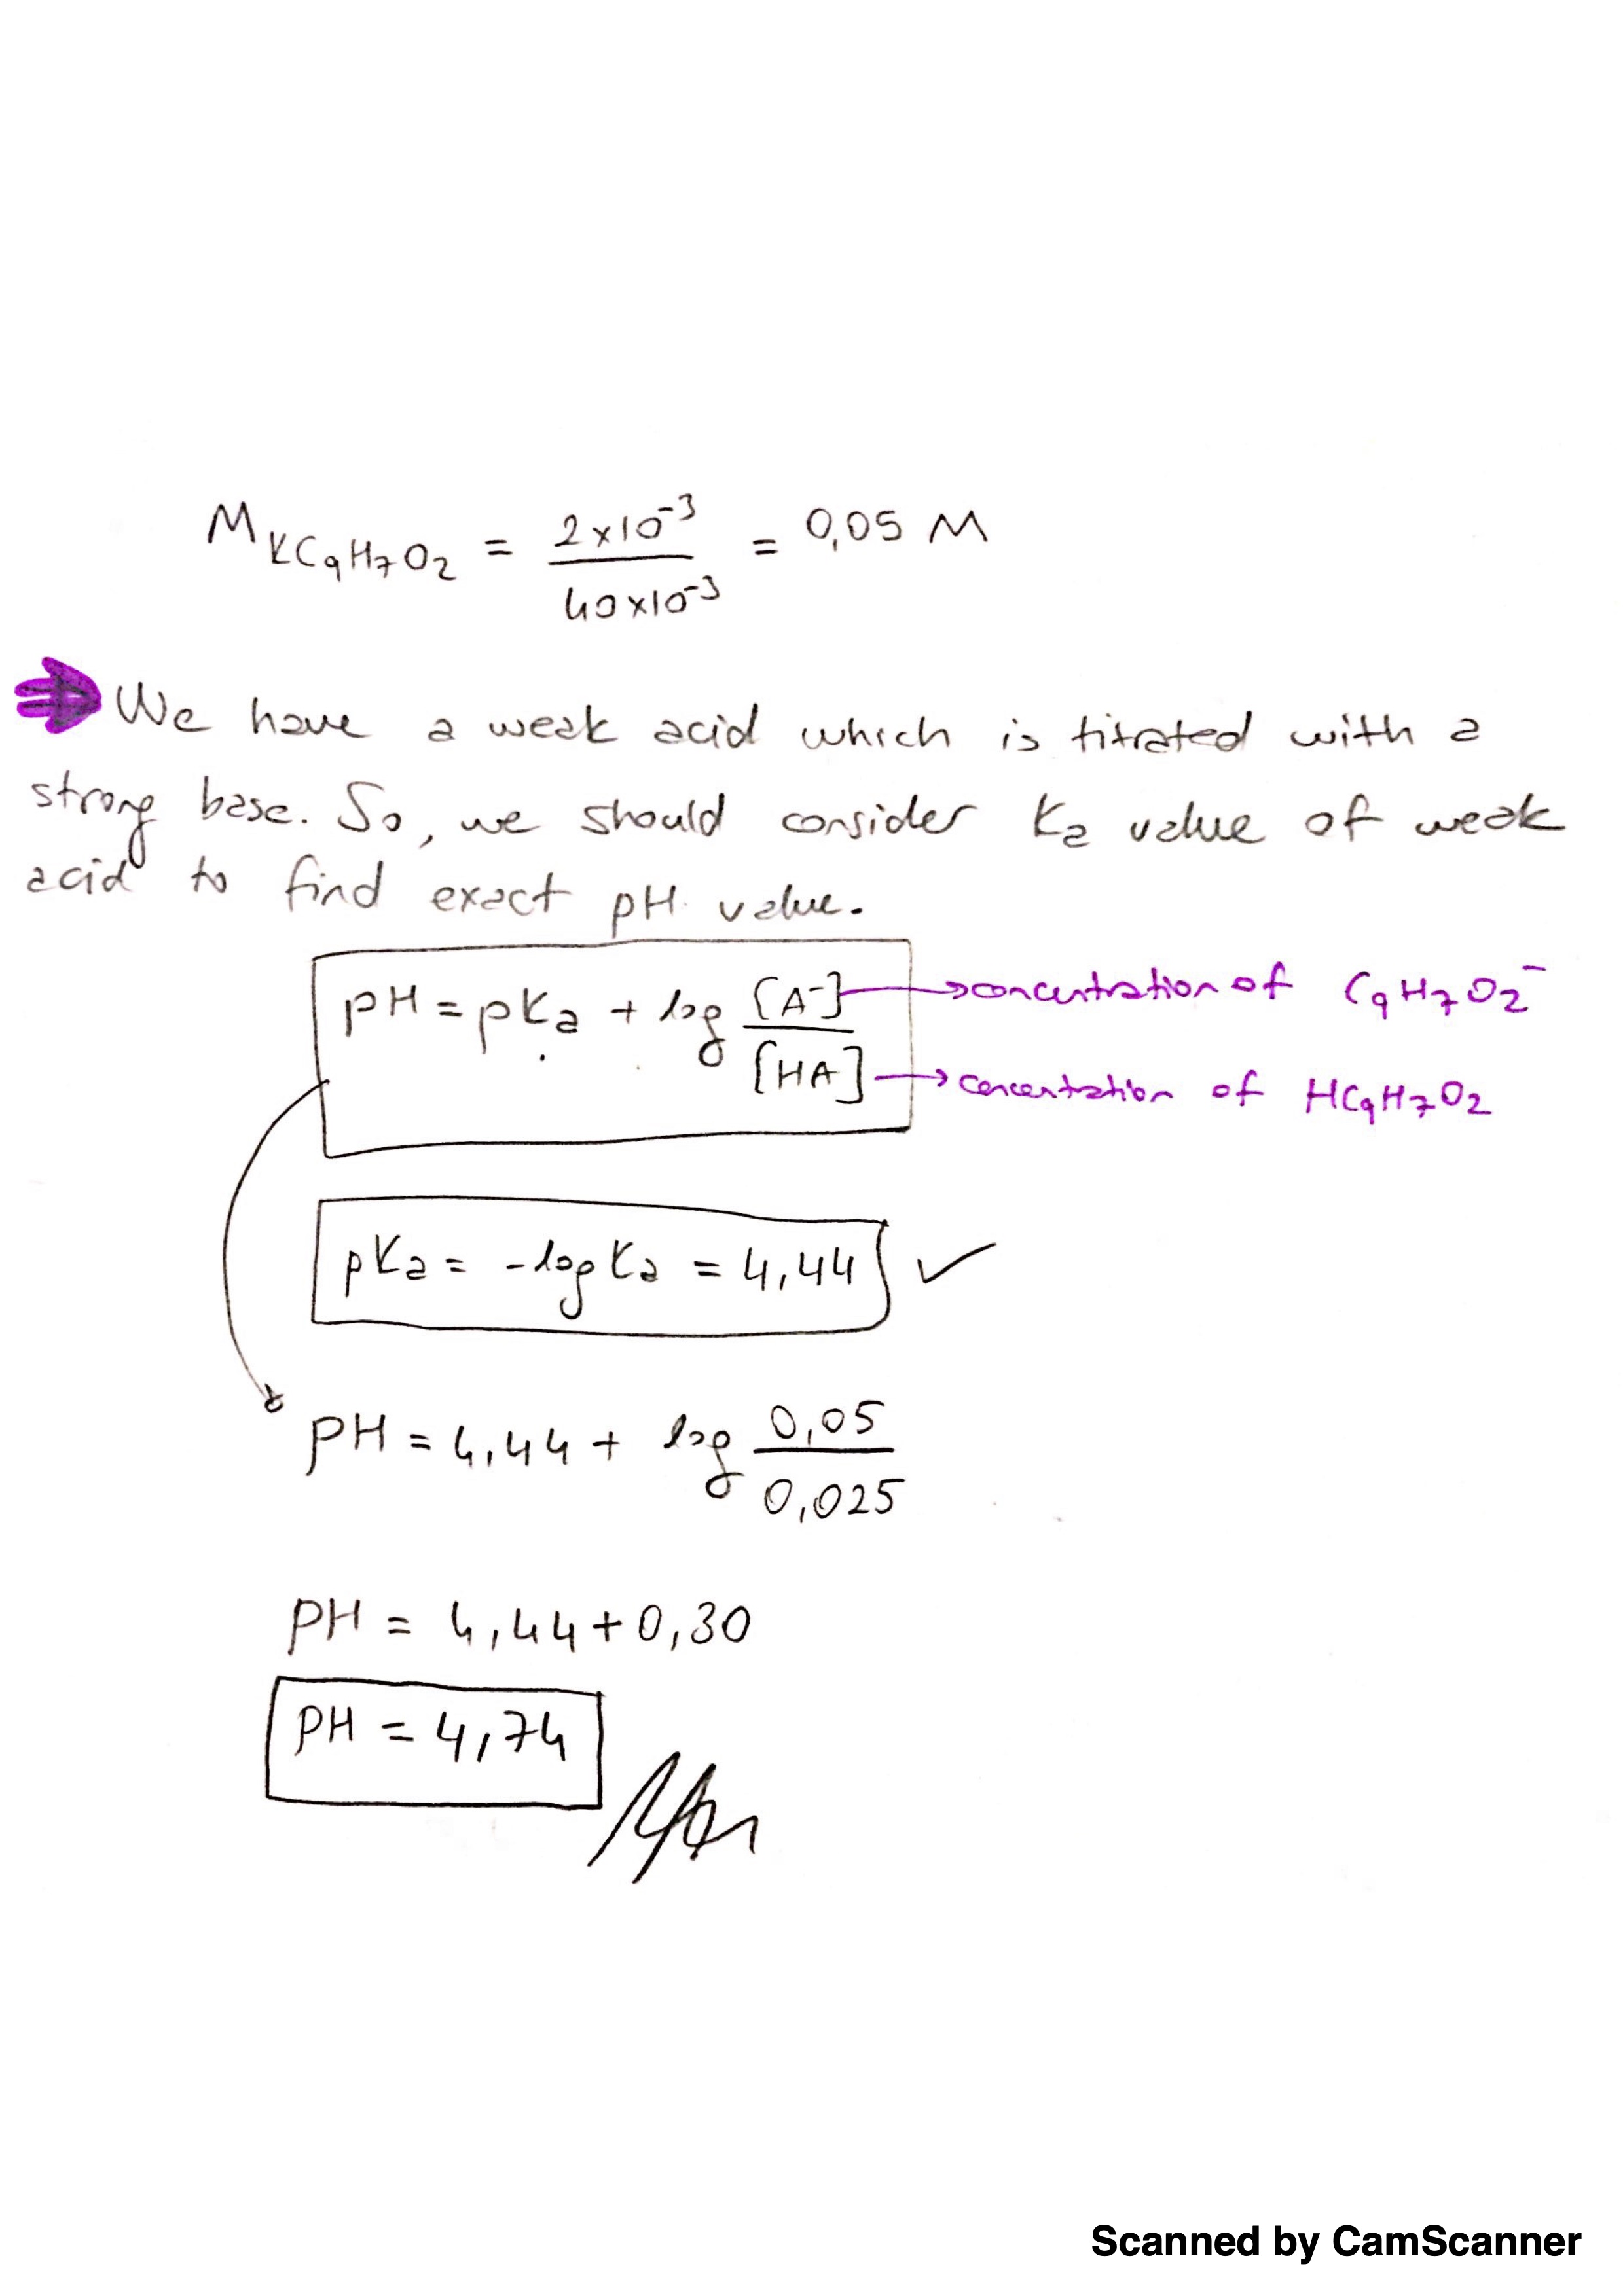 M KC9H7O2 = 2x10⁻³ / 40x10⁻³ = 0,05 M
⇒ We have a weak acid which is titrated with a
strong base. So, we should consider Ka value of weak
acid to find exact pH value.
pH = pKa + log [A⁻] / [HA]
→ concentration of C9H7O2⁻
→ concentration of HC9H7O2
pKa = -log Ka = 4,44 ✓
pH = 4,44 + log 0,05 / 0,025
pH = 4,44 + 0,30
pH = 4,74
Scanned by CamScanner